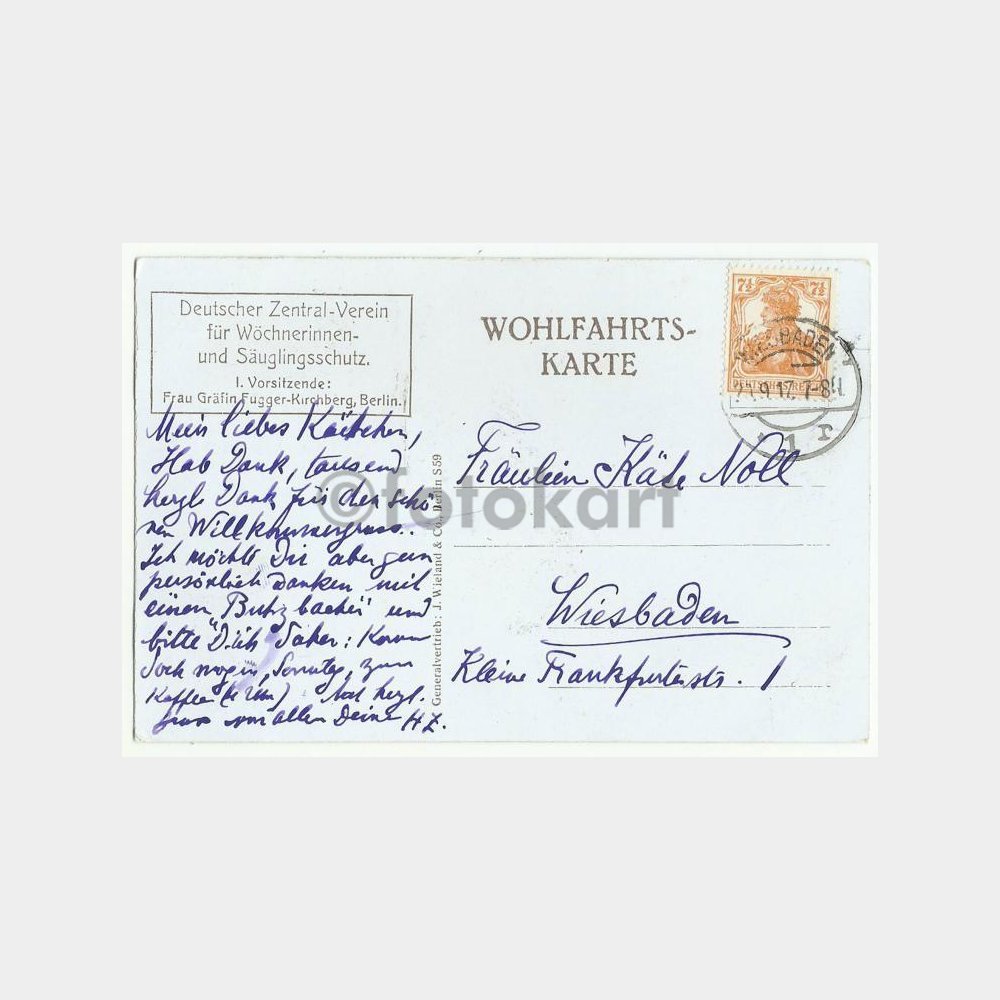 Deutscher Zentral-Verein
für Wöchnerinnen-
und Säuglingsschutz.
I. Vorsitzende:
Frau Gräfin Fugger-Kirchberg, Berlin.
WOHLFAHRTS-
KARTE
7½ 7½
DEUTSCHES REICH
WIESBADEN
21.9.17. 7-8N
* 1 r
Mein liebes Kätchen,
Hab Dank, tausend
herzl. Dank für den schö-
nen Willkommengruss.
Ich möchte Dir aber gern
persönlich danken mit
einem und
bitte Dich daher: Komm
doch morgen, Sonntag, zum
Kaffee (4 Uhr) herzl.
von allen Deine H Z.
Generalvertrieb: J. Wieland & Co., Berlin S59
Fräulein Käte Noll
Wiesbaden
Kleine Frankfurterstr. 1
©fotokart